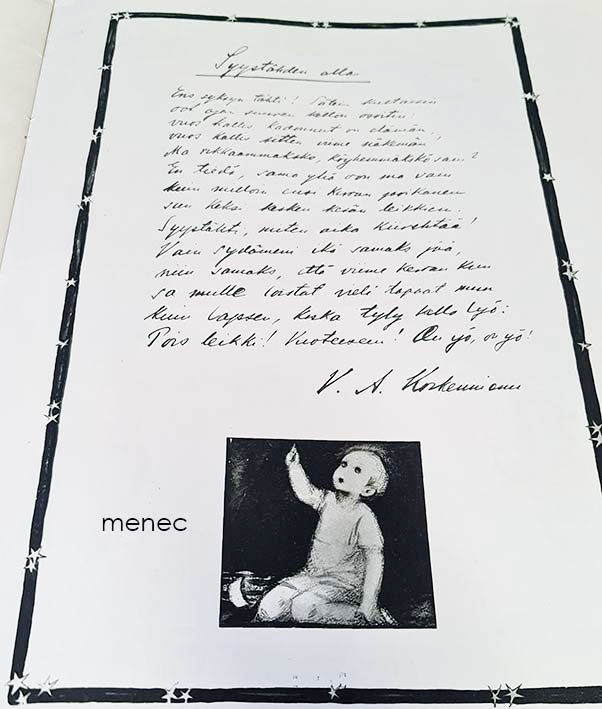 Syystähden alla
Ens syksyn tähti! Säten kultaisin
oot ajan suuren kellon osoitin:
vuos kallis kadonnut on elämän,
vuos kallis sitten viime näkemän.
Ma rikkaammaksko, köyhemmäksikö sain?
En tiedä, sama yhä oon ma vain
kuin milloin ensi kerran poikanen
sun keksi kesken kesän leikkien.
Syystähti, miten aika kiirehtää!
Vain sydämeni iki samaks jää,
niin samaks, että viime kerran kun
sa mulle loistat vielä tapaat mun
kuin lapsen, koska tyly kello lyö:
Pois leikki! Vuoteeseen! On yö, on yö!
V. A. Koskenniemi
menec